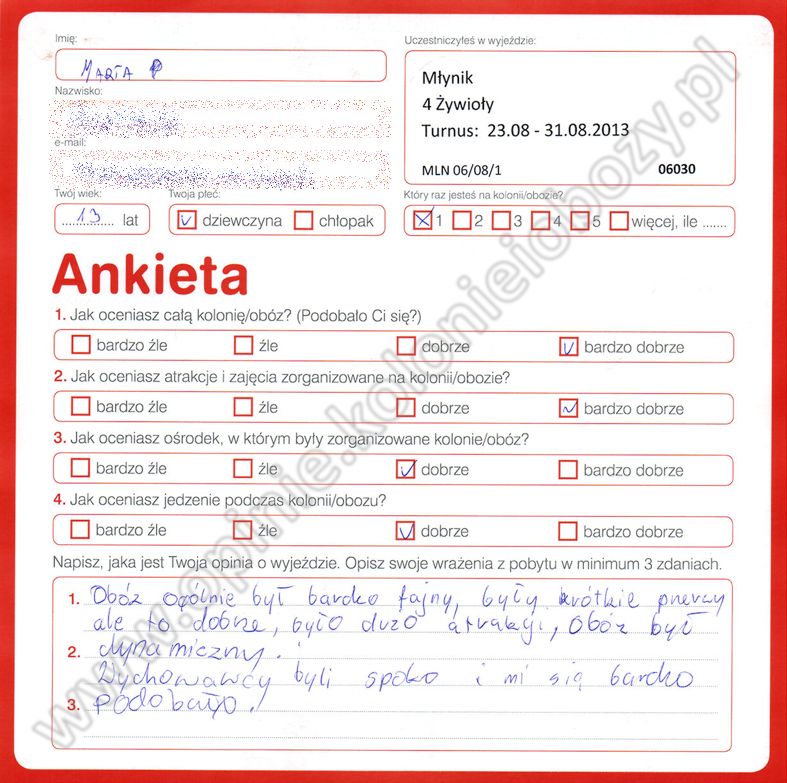 Imię:
MARTA P
Nazwisko:
e-mail:
Twój wiek:
13 lat
Twoja płeć:
dziewczyna chłopak
Uczestniczyłeś w wyjeździe:
Młynik
4 Żywioły
Turnus: 23.08 - 31.08.2013
MLN 06/08/1 06030
Który raz jesteś na kolonii/obozie?
1 2 3 4 5 więcej, ile .......
Ankieta
1. Jak oceniasz całą kolonię/obóz? (Podobało Ci się?)
bardzo źle źle dobrze bardzo dobrze
2. Jak oceniasz atrakcje i zajęcia zorganizowane na kolonii/obozie?
bardzo źle źle dobrze bardzo dobrze
3. Jak oceniasz ośrodek, w którym były zorganizowane kolonie/obóz?
bardzo źle źle dobrze bardzo dobrze
4. Jak oceniasz jedzenie podczas kolonii/obozu?
bardzo źle źle dobrze bardzo dobrze
Napisz, jaka jest Twoja opinia o wyjeździe. Opisz swoje wrażenia z pobytu w minimum 3 zdaniach.
1. Obóz ogólnie był bardzo fajny, były krótkie przerwy
ale to dobrze, było dużo atrakcji, Obóz był
2. dynamiczny.
Wychowawcy byli spoko i mi się bardzo
3. podobało.
www.opinie.kolonieiobozy.pl